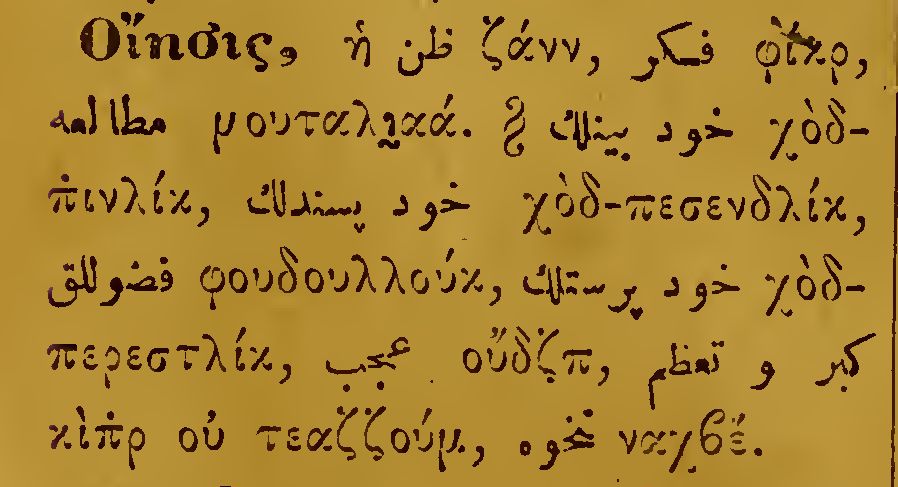 Οἴησις, ἡ ظن ζάνν, فكر φὶκρ,
مطالعه μουταλαά. § خود بينلك χὸδ-
π̇ινλίκ, خود پسندلك χὸδ-πεσενδλίκ,
فضوللق φουδουλλούκ, خود پرستلك χὸδ-
περεστλίκ, عجب οὔδζπ, كبر و تعظم
κὶπ̇ρ οὐ τεαζζούμ, نخوه ναχβέ.